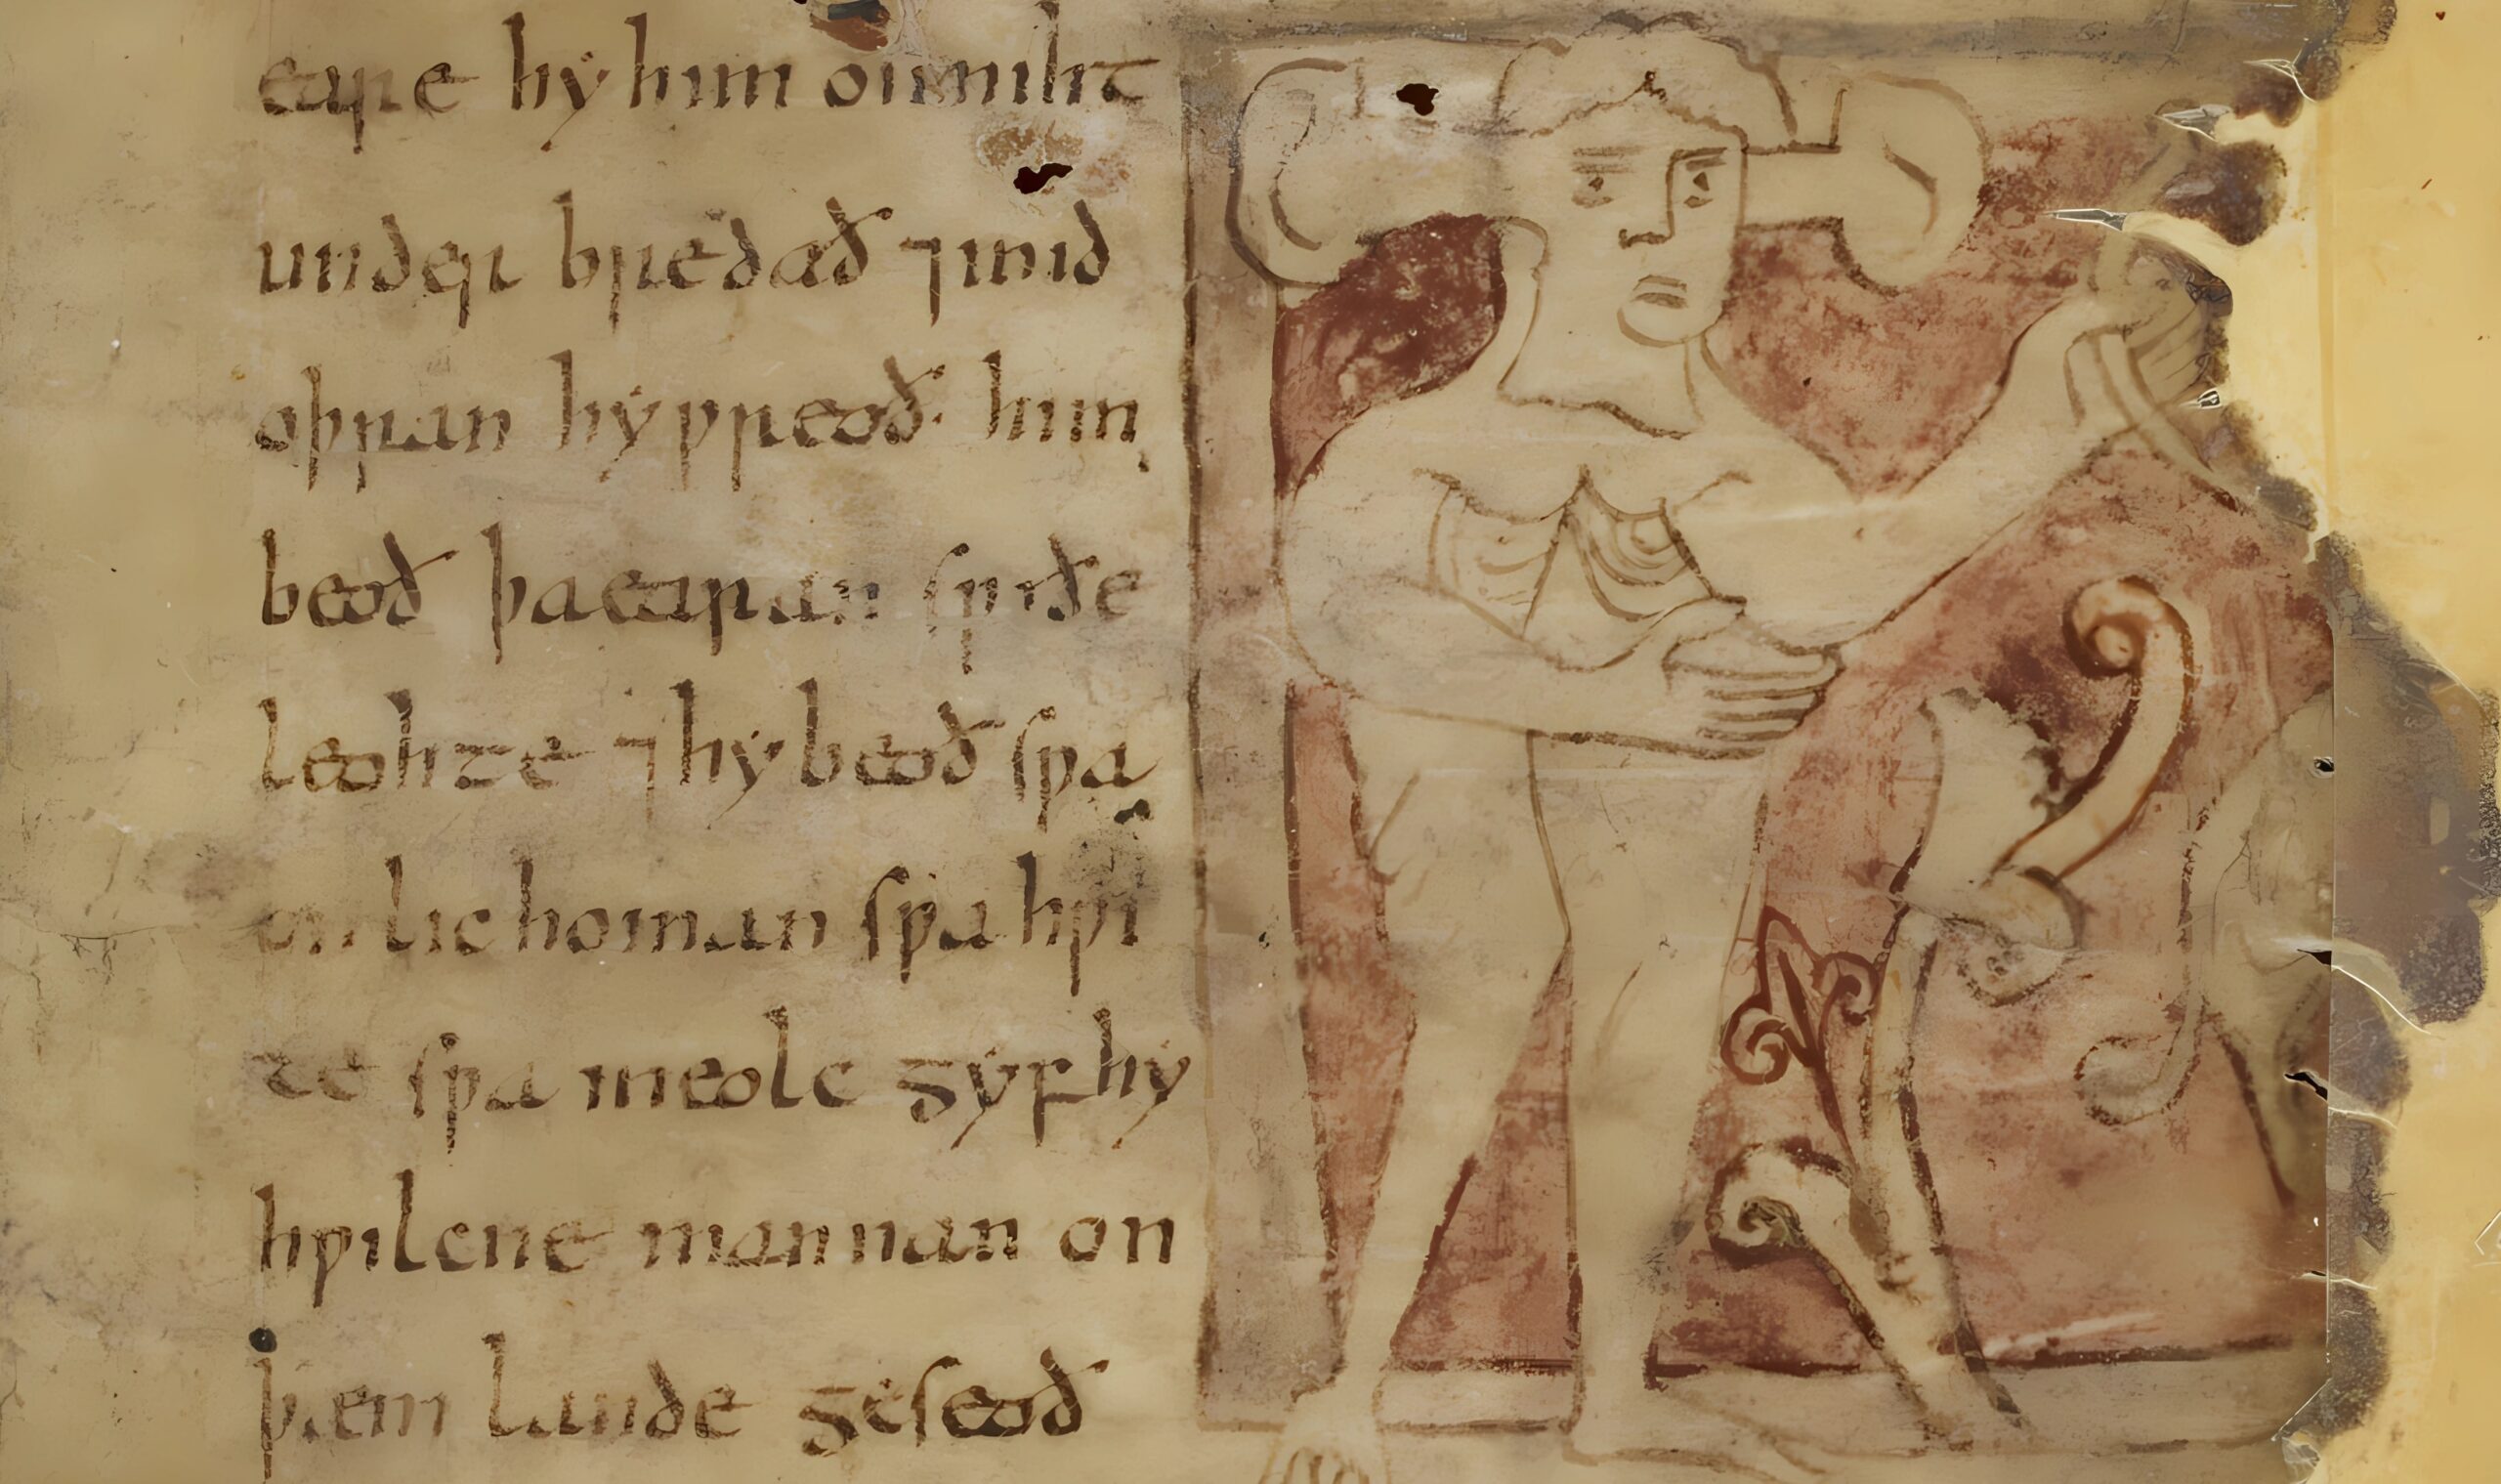 eare hy him on niht
under bredað ⁊ mid
oþran hy ƿreoð· him
beoð þa earan sƿiðe
leohte ⁊ hy beoð sƿa
on lichoman sƿa hƿi
te sƿa meolc gyf hy
hƿilcne mannan on
þæm lande geseoð